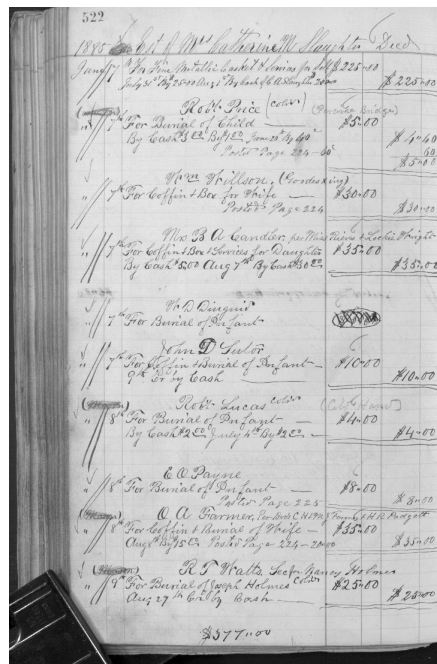 522
1885 Est of Mrs Catherine M Slaughter Decd
June 7th For Fine Metallic Casket & Services for Self $225.00
July 31st By 25.00 Aug 1st By Cash of C.A. Slaughter 200.00 $225.00
Robt Price (Cold)
" 7th For Burial of Child — $5.00
By Cash 3.00 By 1.00 June 23d By 40c $4.40
Posted Page 224 — 60c 60
$5.00
Wm Willson,
" 7th For Coffin & Box for Wife — $30.00
Posted Page 224 $30.00
Mrs B A Candler, per Miss & Wright
" 7th For Coffin & Box & Services for Daughter $35.00
By Cash $5.00 Aug 7th By Cash $30.00 $35.00
W D Diuguid
" 7th For Burial of Infant
John D Tutor
" 7th For Coffin & Burial of Infant — $10.00
9th Cr by Cash — $10.00
Robt Lucas Cold
" 8th For Burial of Infant — $4.00
By Cash $2.00 July 4th By $2.00 — $4.00
E. O. Payne
" 8th For Burial of Infant — $8.00
Posted Page 225 $8.00
O A Farmer, & H.R. Padgett
" 8th For Coffin & Burial of Wife — $35.00
Aug By 15.00 Posted Page 224 — 20.00 $35.00
R T Watts Nancy Holmes
" 9th For Burial of Joseph Holmes Cold $25.00
Aug 27th Cr by Cash — $25.00
$377.00